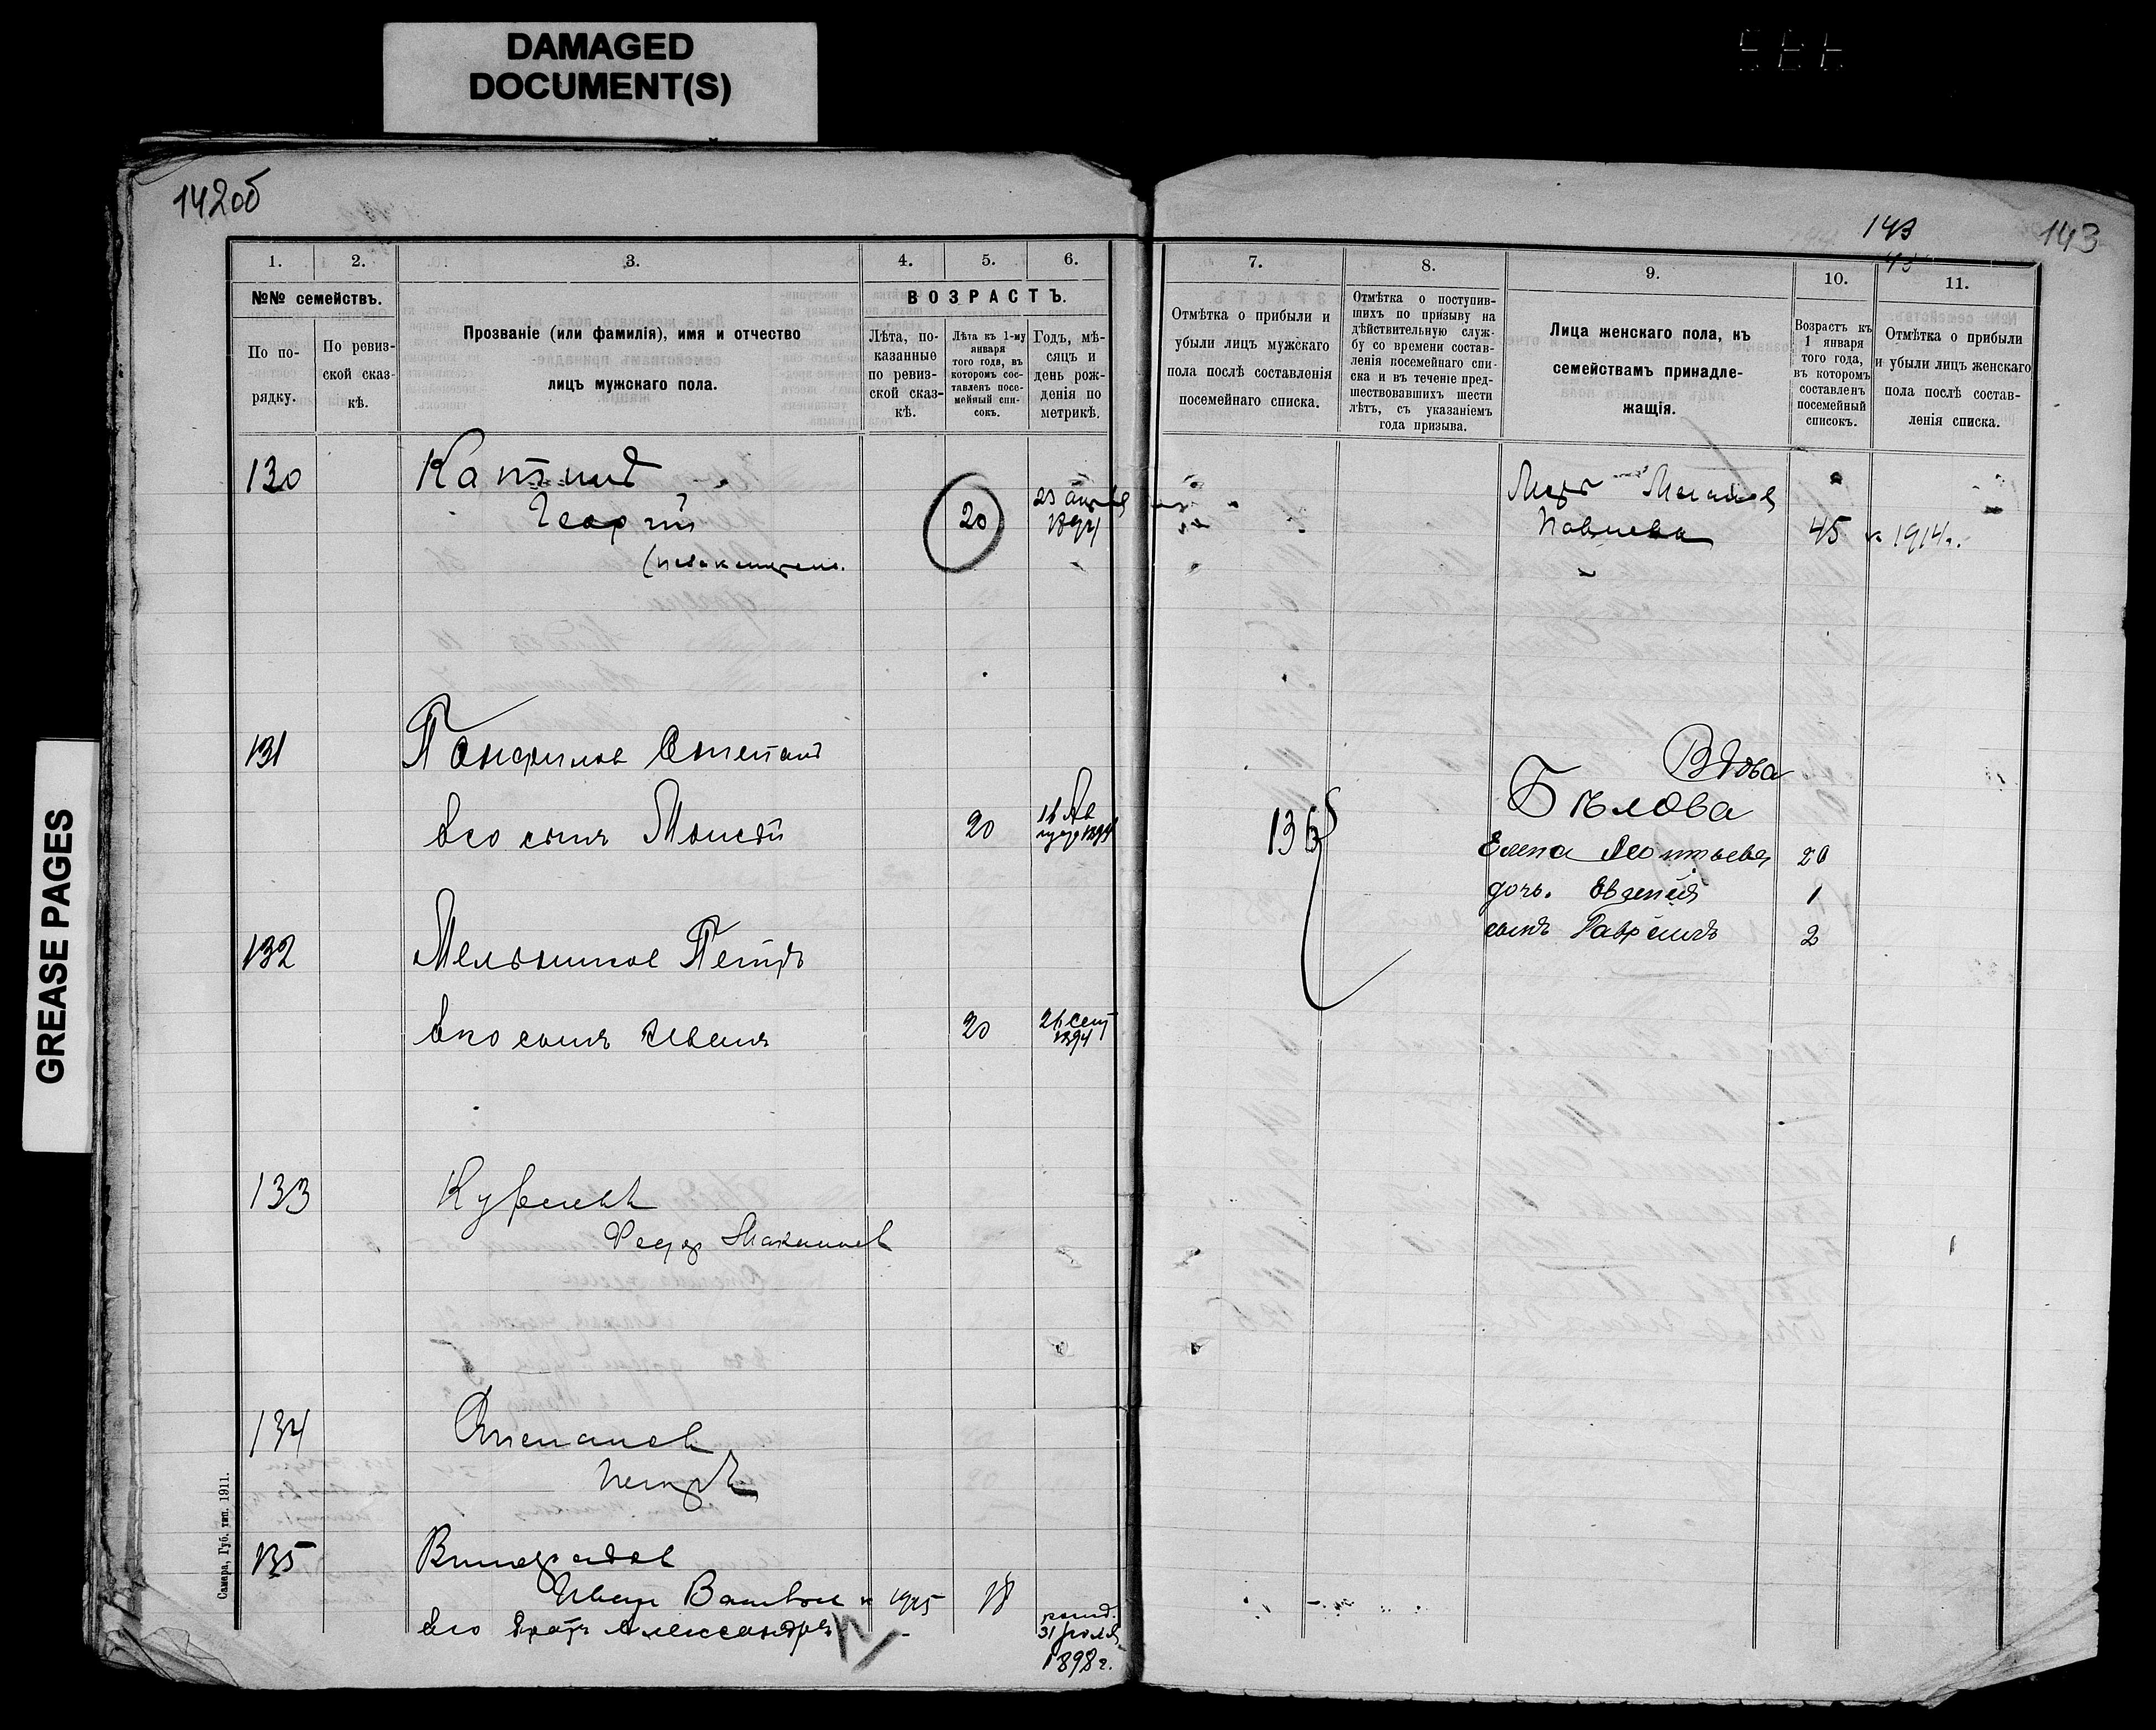 DAMAGED
DOCUMENT(S)
GREASE PAGES
142об
1. 2. 3. 4. 5. 6.
№№ семействъ.
По по-
рядку.
По ревиз-
ской сказ-
кѣ.
Прозваніе (или фамилія), имя и отчество
лицъ мужскаго пола.
ВОЗРАСТЪ.
Лѣта, по-
казанные
по ревиз-
ской сказ-
кѣ.
Лѣта къ 1-му
января
того года, въ
которомъ сос-
тавленъ посе-
мейный спи-
сокъ.
Годъ, мѣ-
сяцъ и
день рож-
денія по
метрикѣ.
130
Георгій
20
131
Панфилов Степанъ
его сынъ Моисей
20
16 Ав
густ 1894
132
Мельников Петръ
его сынъ Иванъ
20
26 Сент
1894
133
Федор
134
Степанов
Петръ
135
Виноградов
Иван 1915 18
его братъ Александръ
рожд.
31 июля
1898 г.
Самара, Губ. тип. 1911.
143
143
7. 8. 9. 10. 11.
Отмѣтка о прибыли и
убыли лицъ мужскаго
пола послѣ составленія
посемейнаго списка.
Отмѣтка о поступив-
шихъ по призыву на
дѣйствительную служ-
бу со времени состав-
ленія посемейнаго спи-
ска и въ теченіе пред-
шествовавшихъ шести
лѣтъ, съ указаніемъ
года призыва.
Лица женскаго пола, къ
семействамъ принадле-
жащія.
Возрастъ къ
1 января
того года,
въ которомъ
составленъ
посемейный
списокъ.
Отмѣтка о прибыли
и убыли лицъ женскаго
пола послѣ состав-
ленія списка.
Павлова 45 к 1914 г.
Вдова
136
Бѣлова
Елена Леонтьева 20
дочь. Евгенія 1
сынъ Гавріилъ 2